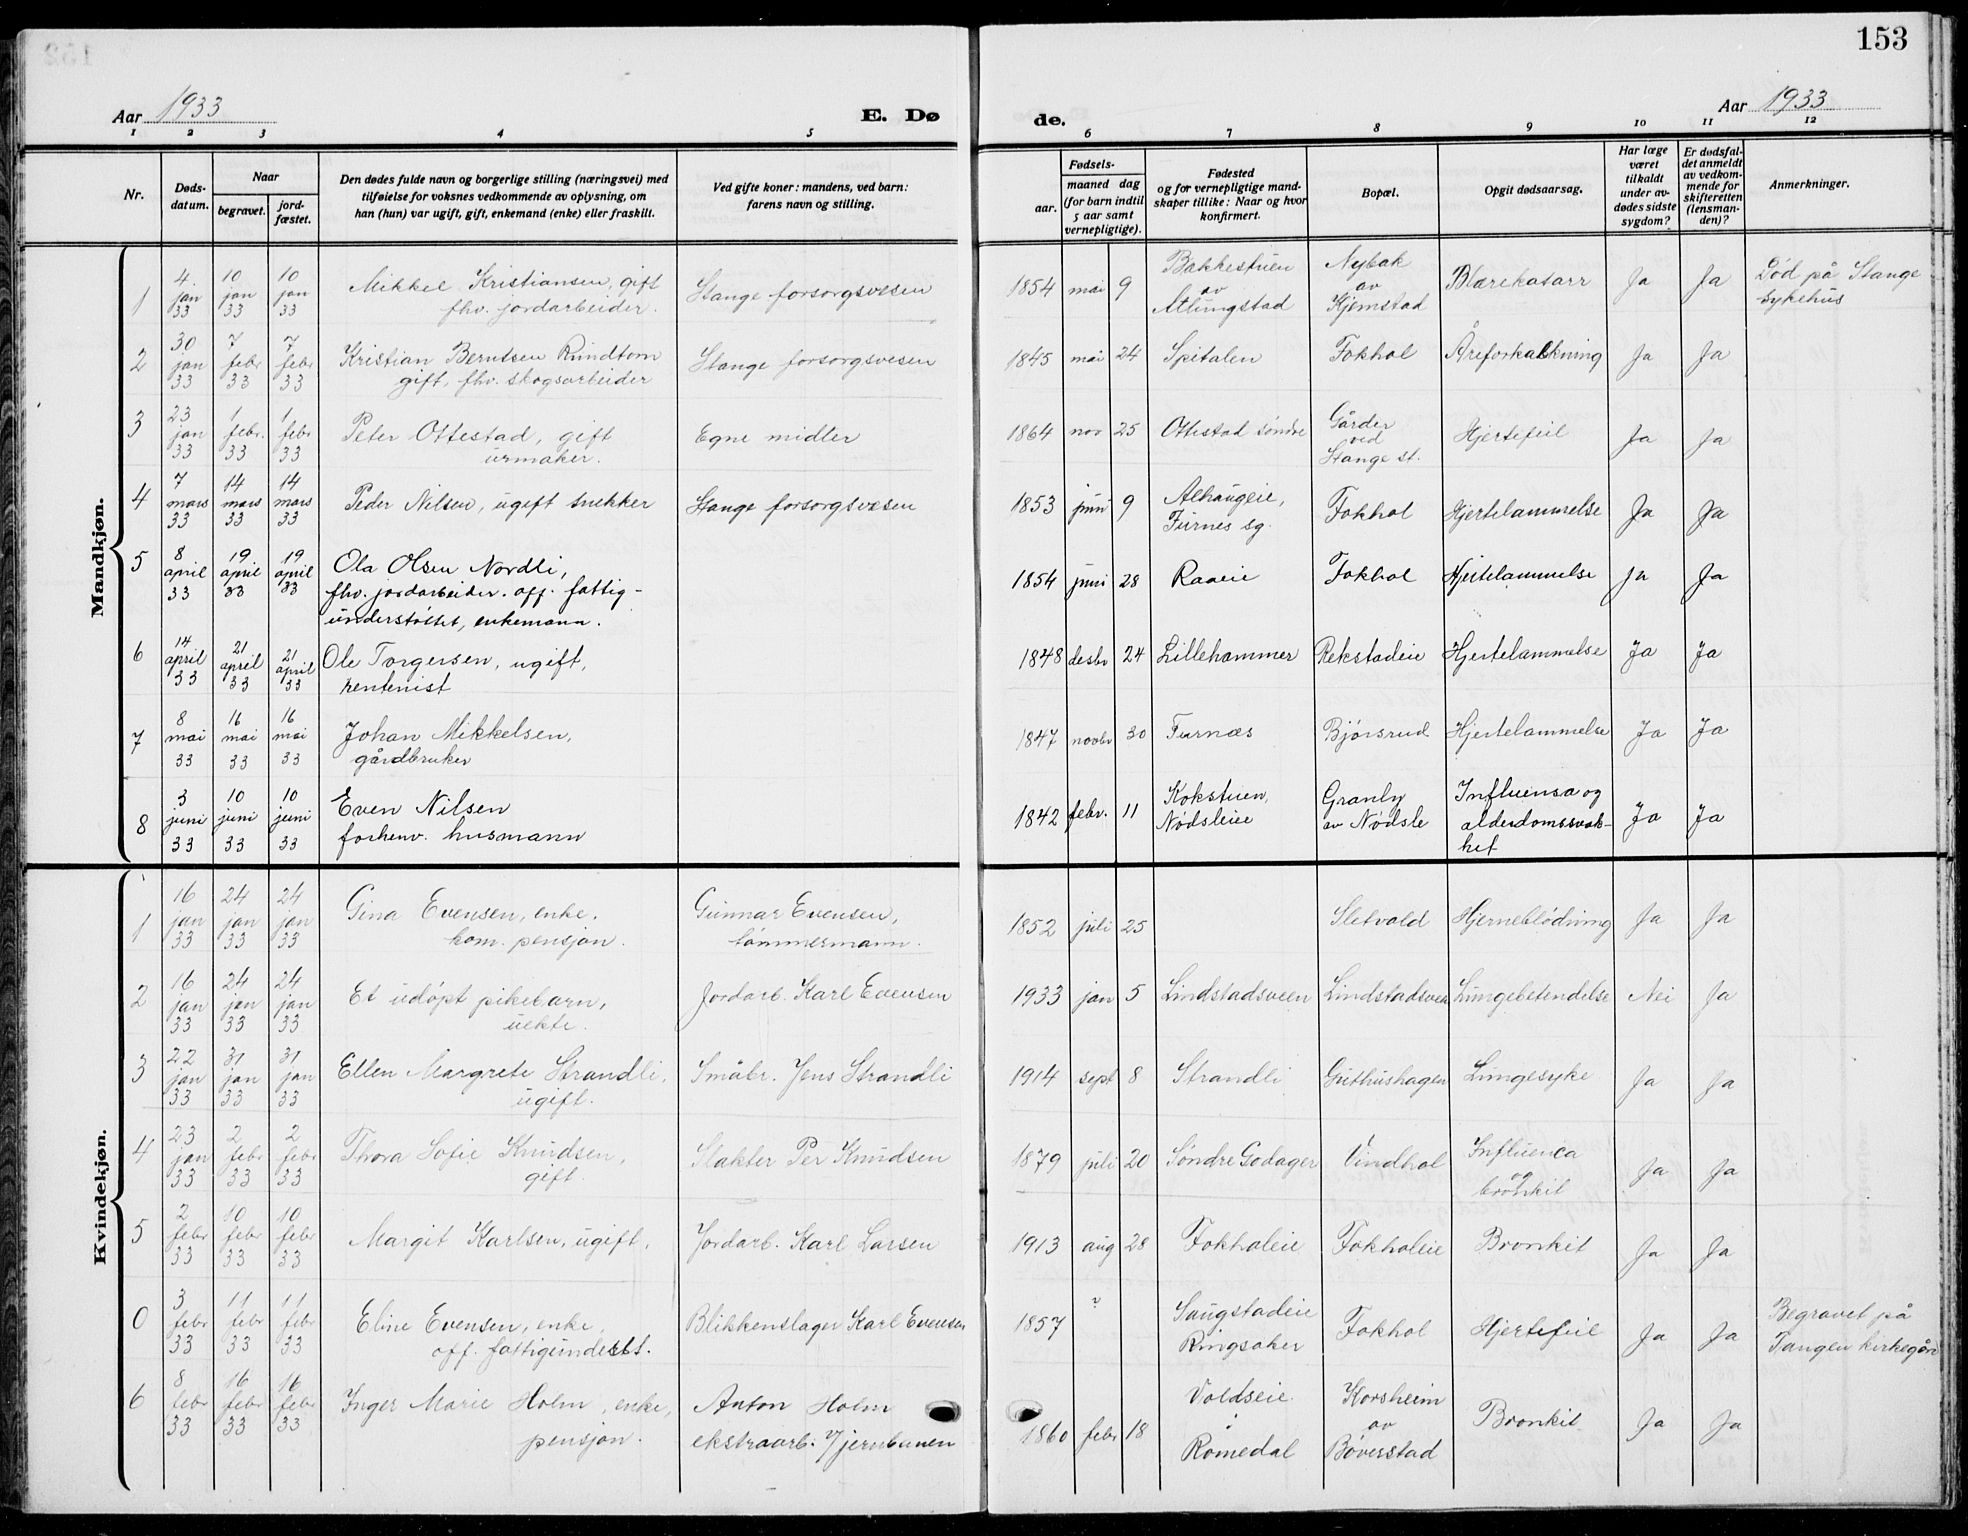 153
Aar 1933
E. Dø
de.
Aar 1933
1 2 3 4 5 6 7 8 9 10 11 12
Nr.
Døds-
datum.
Naar
begravet.
jord-
fæstet.
Den dødes fulde navn og borgerlige stilling (næringsvei) med
tilføielse for voksnes vedkommende av oplysning, om
han (hun) var ugift, gift, enkemand (enke) eller fraskilt.
Ved gifte koner: mandens, ved barn:
farens navn og stilling.
Fødsels-
aar.
maaned dag
(for barn indtil
5 aar samt
vernepligtige).
Fødested
og for vernepligtige mand-
skaper tillike: Naar og hvor
konfirmert.
Bopæl.
Opgit dødsaarsag.
Har læge
været
tilkaldt
under av-
dødes sidste
sygdom?
Er dødsfal-
det anmeldt
av vedkom-
mende for
skifteretten
(lensman-
den)?
Anmerkninger.
Mandkjøn.
1 4 jan 33 10 jan 33 10 jan 33 Mikkel Kristiansen, gift
fhv. jordarbeider. Stange forsorgsvesen 1854 mai 9 Bakkestuen
av
Atlungstad Nybak
av
Kjemstad Blærekatarr Ja Ja Død på Stange
sykehus
2 30 jan 33 7 febr 33 7 febr 33 Kristian Berntsen Rundtom
gift, fhv. skogsarbeider Stange forsorgsvesen 1845 mai 24 Spitalen Fokhol Åreforkalkning Ja Ja
3 23 jan 33 1 febr. 33 1 febr 33 Peter Ottestad, gift
urmaker. Egne midler 1864 nov 25 Ottestad søndre Gårder
ved
Stange st. Hjertefeil Ja Ja
4 7 mars 33 14 mars 33 14 mars 33 Peder Nilsen, ugift snekker Stange forsorgsvesen 1853 juni 9 Alhaugeie,
Furnes sg. Fokhol Hjertelammelse Ja Ja
5 8 april 33 19 april 33 19 april 33 Ola Olsen Nordli,
fhv. jordarbeider. off. fattig-
understøttet, enkemann. 1854 juni 28 Raaeie Fokhol Hjertelammelse Ja Ja
6 14 april 33 21 april 33 21 april 33 Ole Torgersen, ugift,
rentenist 1848 desbr 24 Lillehammer Rekstadeie Hjertelammelse Ja Ja
7 8 mai 33 16 mai 33 16 mai 33 Johan Mikkelsen,
gårdbruker 1847 novbr 30 Furnæs Bjørsrud Hjertelammelse Ja Ja
8 3 juni 33 10 juni 33 10 juni 33 Even Nilsen
forhenv. husmann 1842 febr. 11 Kokstuen,
Nødsleie Granly
av Nødsle Influensa og
alderdomssvak-
het Ja Ja
Kvindekjøn.
1 16 jan 33 24 jan 33 24 jan 33 Gina Evensen, enke.
kom. pensjon. Gunnar Evensen,
tømmermann. 1852 juli 25 Sletvold Hjerneblødning Ja Ja
2 16 jan 33 24 jan 33 24 jan 33 Et udøpt pikebarn,
uekte. Jordarb. Karl Evensen 1933 jan 5 Lindstadsveen Lindstadsveen Lungebetendelse Nei Ja
3 22 jan 33 31 jan 33 31 jan 33 Ellen Margrete Strandli,
ugift. Småbr. Jens Strandli 1914 sept 8 Strandli Guthushagen Lungesyke Ja Ja
4 23 jan 33 2 febr 33 2 febr 33 Thora Sofie Knudsen,
gift. Slakter Per Knudsen 1879 juli 20 Søndre Godager Vindhol Influenca
og
bronkit Ja Ja
5 2 febr 33 10 febr 33 10 febr 33 Margit Karlsen, ugift. Jordarb. Karl Larsen 1913 aug 28 Fokholeie Fokholeie Bronkit Ja Ja
0 3 febr 33 11 febr 33 11 febr 33 Eline Evensen, enke.
off. fattigunderst. Blikkenslager Karl Evensen 1857 ? Saugstadeie
Ringsaker Fokhol Hjertefeil Ja Ja Begravet på
Tangen kirkegård
6 8 febr 33 16 febr 33 16 febr 33 Inger Marie Holm, enke,
pensjon. Anton Holm
ekstraarb. v/jernbanen 1860 febr 18 Voldseie
i
Romedal Korsheim
av
Bøverstad Bronkit Ja Ja